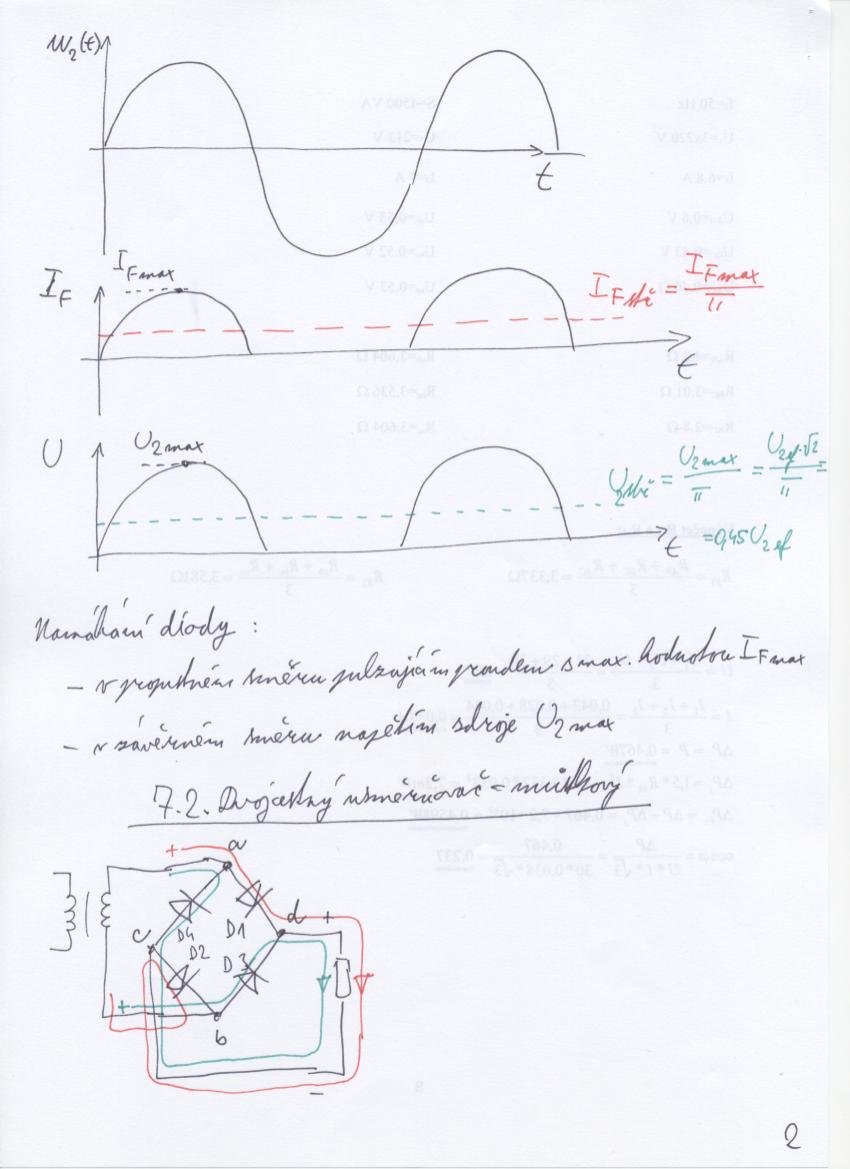 u₂(t)
t
I_F
I_Fmax
I_Fstř = I_Fmax / π
t
U
U₂max
U₂stř = U₂max / π = U₂ef·√2 / π =
= 0,45 U₂ef
t
Namáhání diody :
– v propustném směru pulzujícím proudem s max. hodnotou I_Fmax
– v závěrném směru napětím zdroje U₂max
7.2. Dvojcestný usměrňovač – můstkový
+
a
c
D4
D1
d
+
D2
D3
+
b
–
2